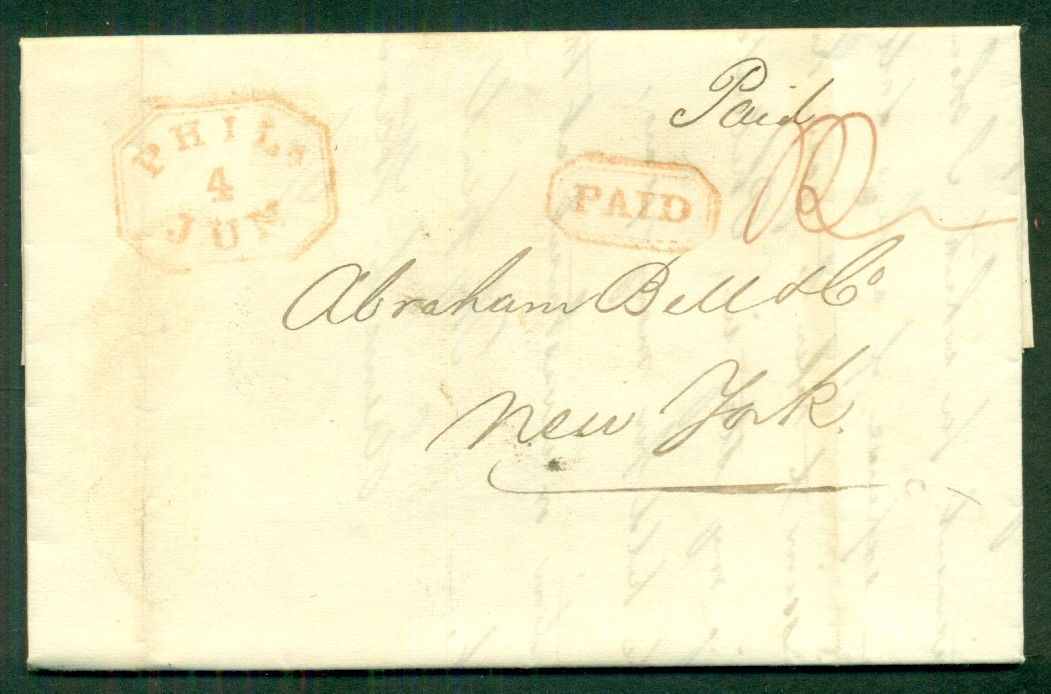 Paid
PHILA
4
JUN
PAID
Abraham Bell & Co
New York.